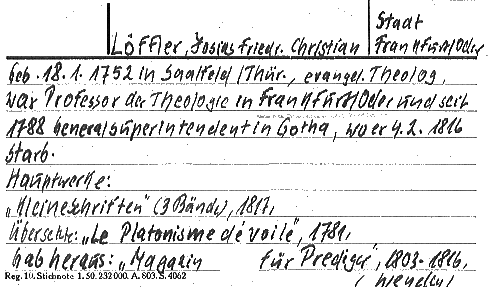 Löffler, Josias Friedr. Christian
Stadt
Frankfurt/Oder
geb. 18.1.1752 in Saalfeld/Thür., evangel. Theolog,
war Professor der Theologie in Frankfurt/Oder und seit
1788 Generalsuperintendent in Gotha, wo er 4.2.1816
starb.
Hauptwerke:
„Kleine Schriften" (3 Bände), 1817,
Übersetzte: „Le Platonisme dévoilé", 1781,
gab heraus: „Magazin für Prediger", 1803-1816,
Reg. 10. Stichnote 1. 50. 232000. A. 803. S. 4062